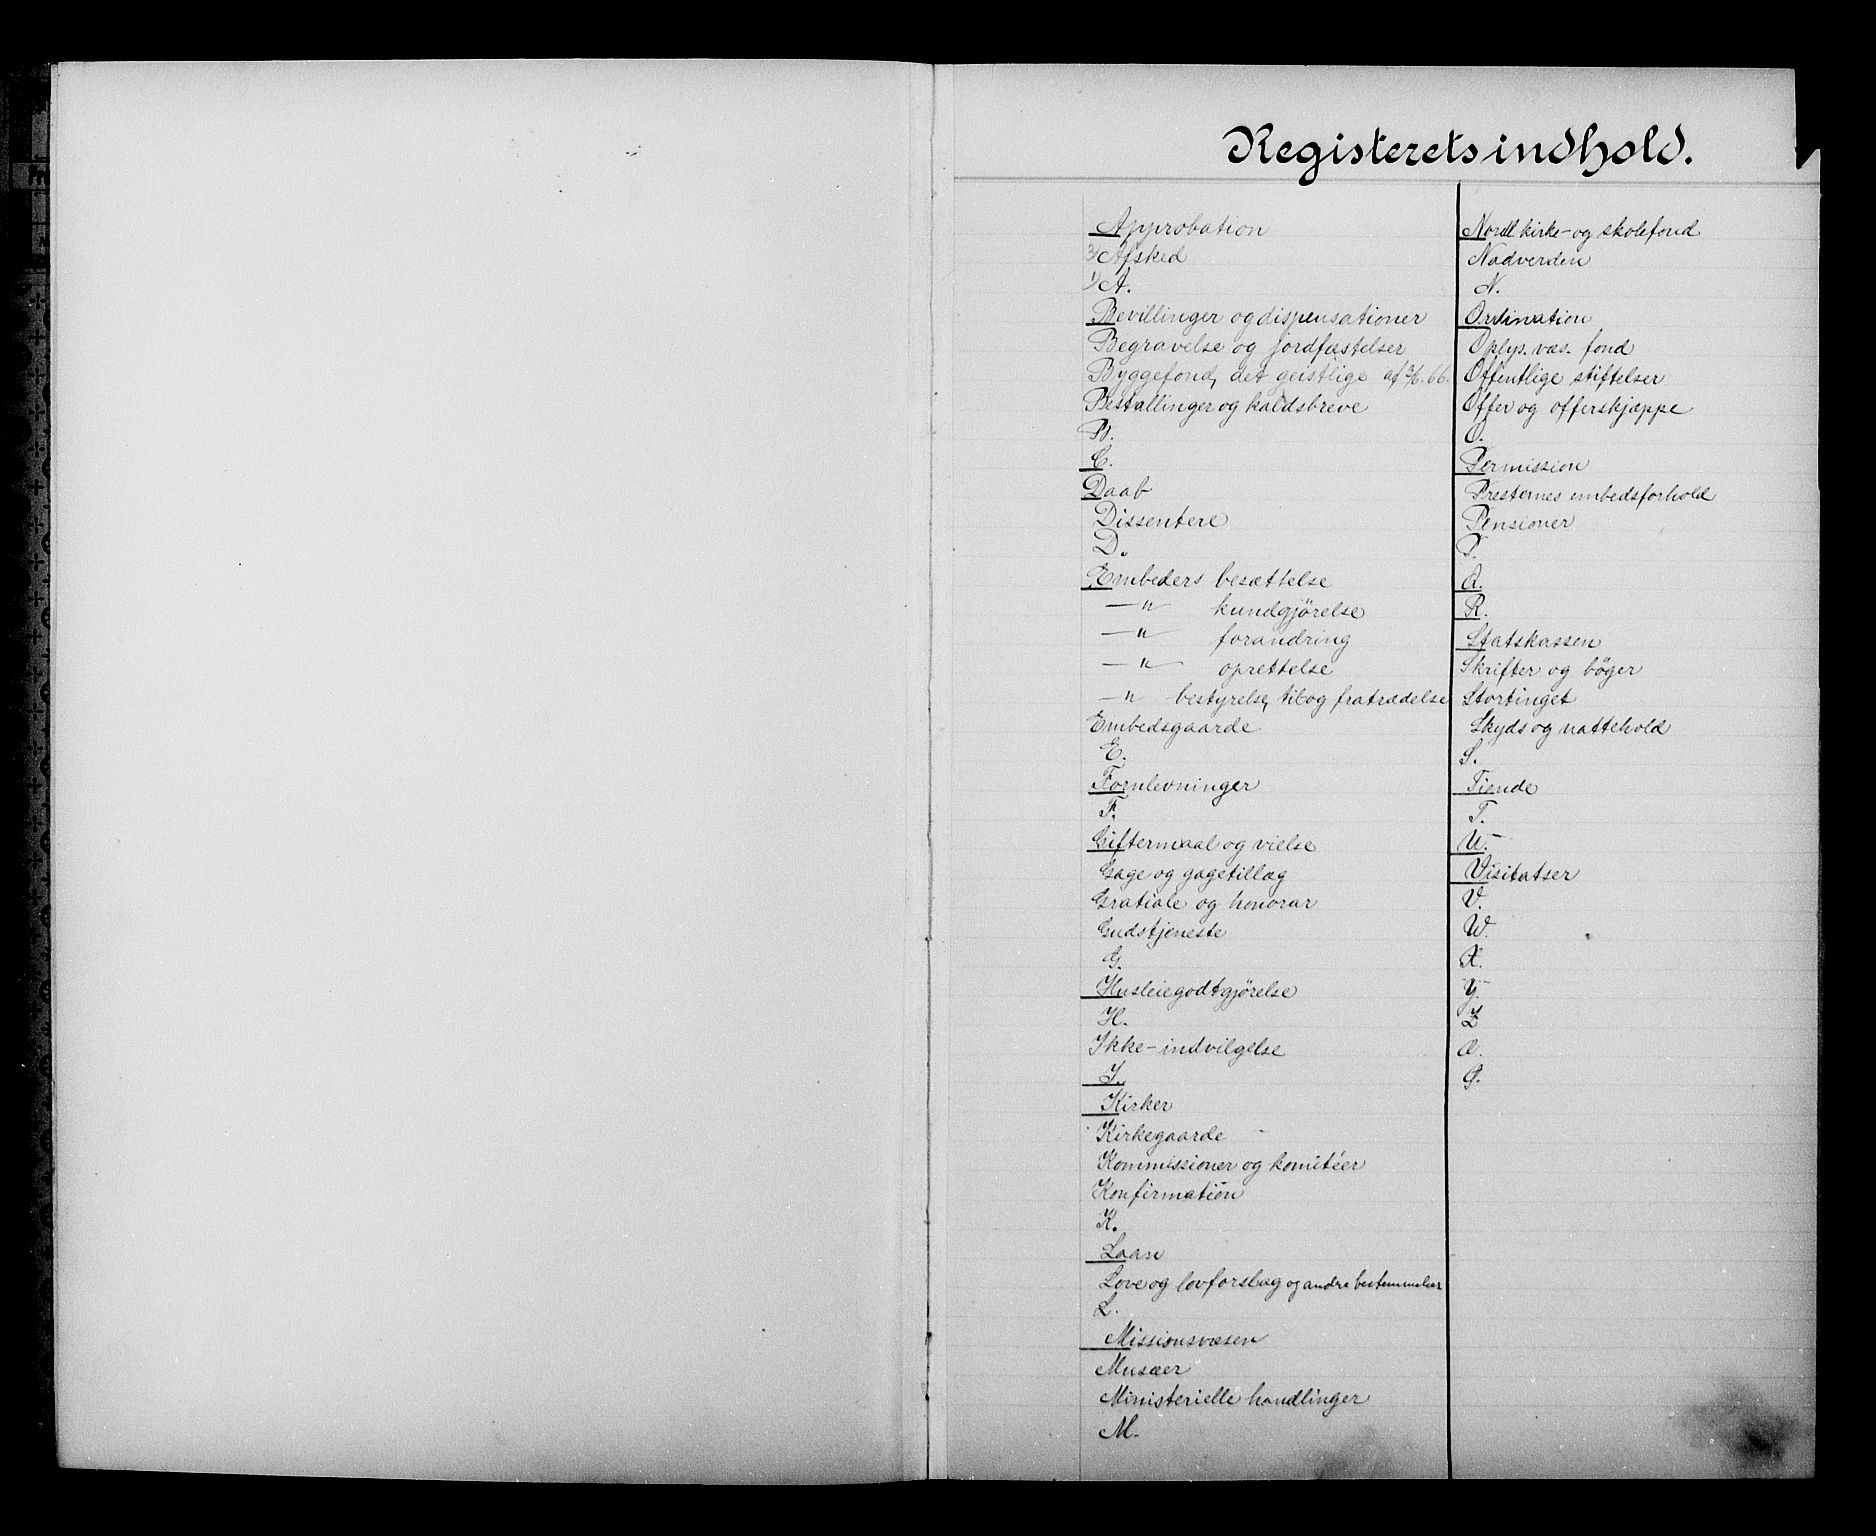 Registerets indhold.
Approbation
2) Afsked
1) A.
Bevillinger og dispensationer
Begravelse og jordfæstelser
Byggefond, det geistlige af 2/6.66.
Bestallinger og kaldsbreve
B.
C.
Daab
Dissentere
D.
Embeders besættelse
—"— kundgjørelse
—"— forandring
—"— oprettelse
—"— bestyrelse, til og fratrædelse
Embedsgaarde
E.
Fornlevninger
F.
Giftermaal og vielse
Gage og gagetillæg
Gratiale og honorar
Gudstjeneste
G.
Husleiegodtgjørelse
H.
Ikke-indvilgelse
I.
Kirker
Kirkegaarde
Kommissioner og komitéer
Konfirmation
K.
Laan
Love og lovforslag og andre bestemmelser
L.
Missionsvæsen
Musæer
Ministerielle handlinger
M.
Nordl kirke- og skolefond
Nadverden
N.
Ordination
Oplys. væs. fond
Offentlige stiftelser
Offer og offerskjæppe
O.
Permission
Presternes embedsforhold
Pensioner
P.
Q.
R.
Statskassen
Skrifter og bøger
Stortinget
Skyds og nattehold
S.
Tiende
T.
U.
Visitatser
V.
W.
X.
Y.
Z
Æ.
Ø.